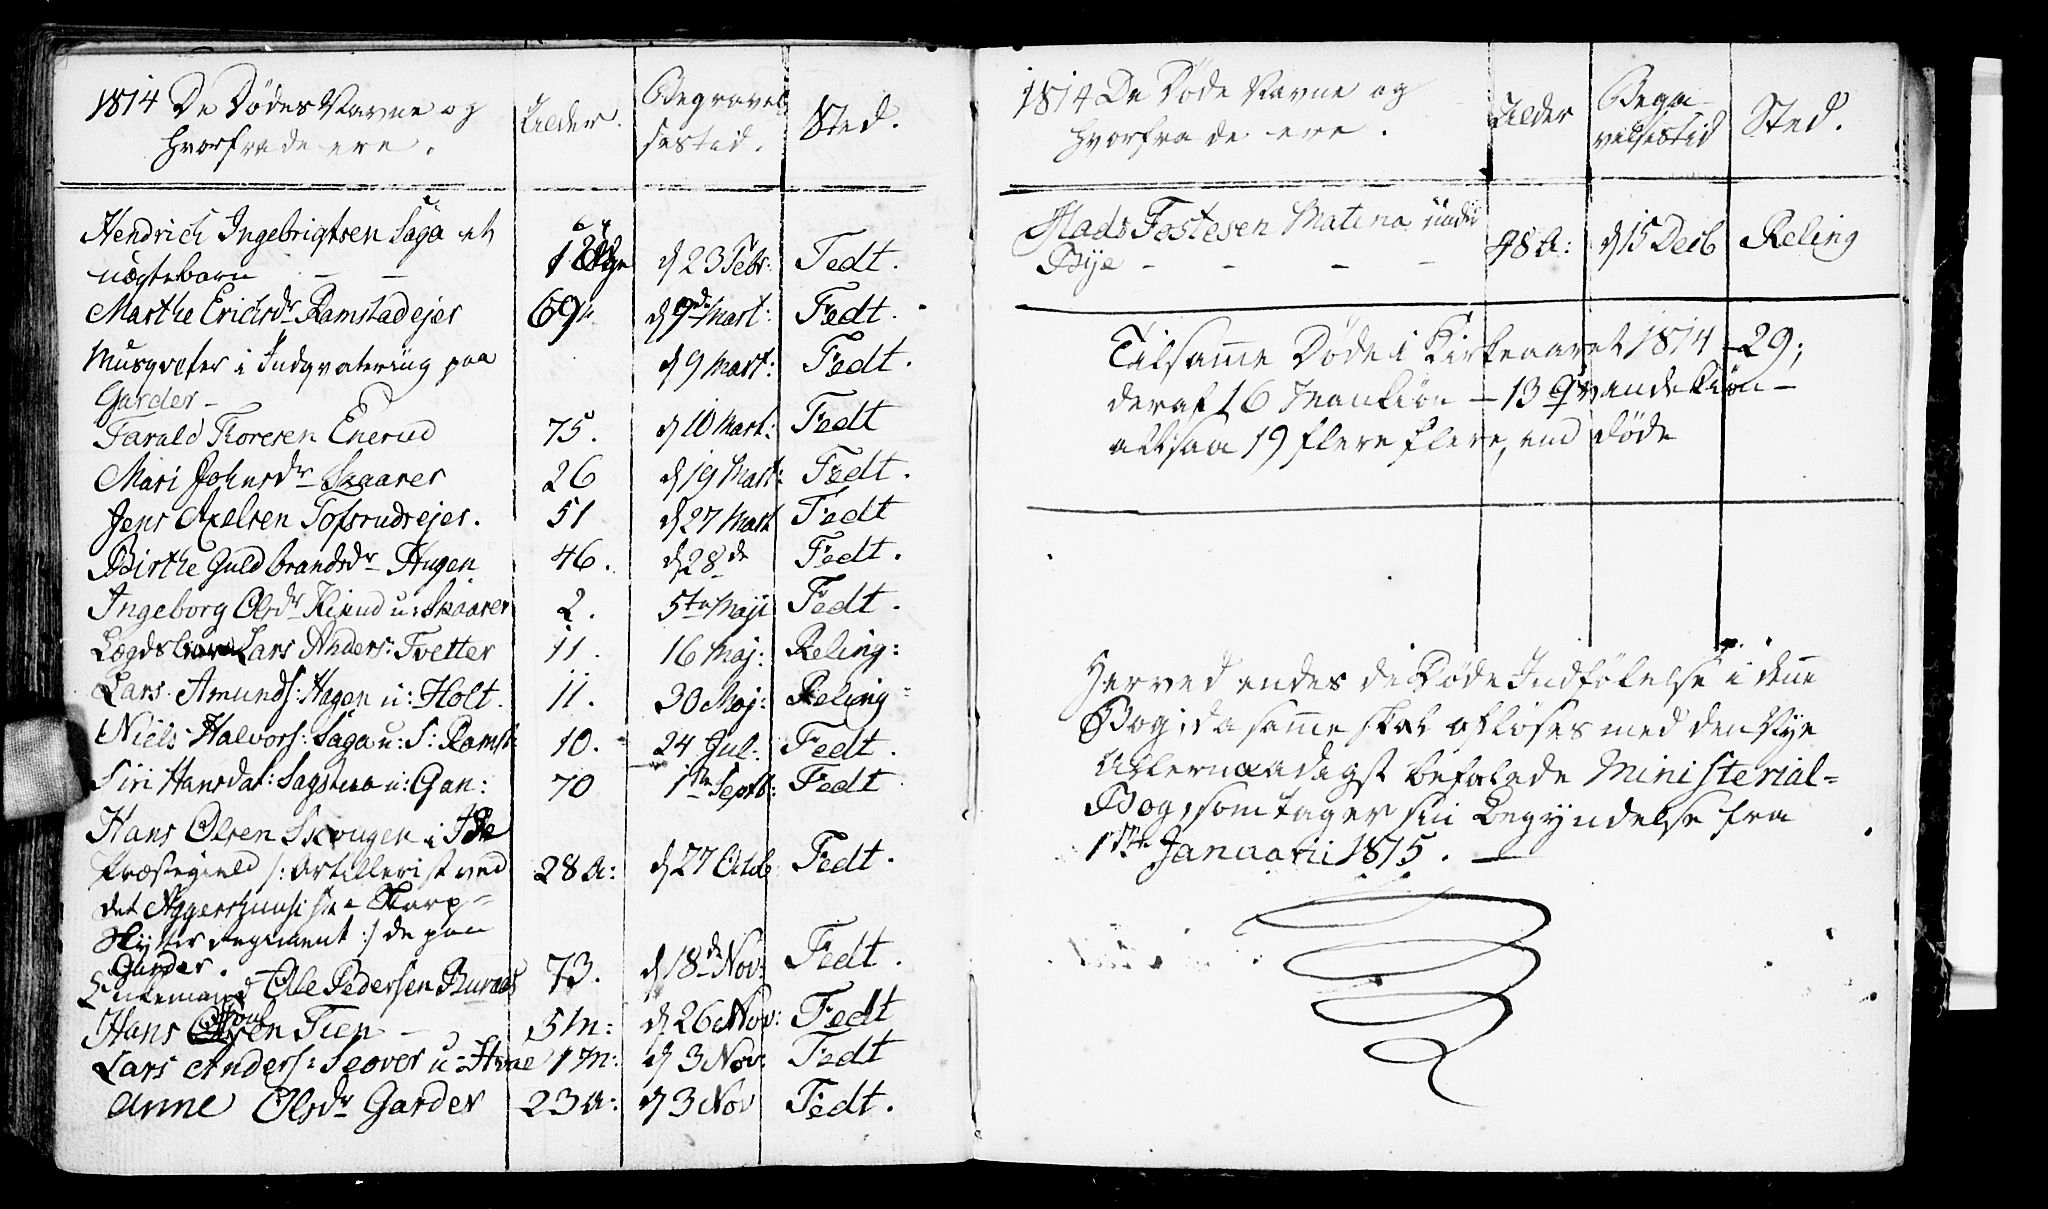 1814 De Dødes Navne og
hvorfra de ere.
Alder.
Begravel
sestid.
Sted.
Hendrich Ingebrigtsen Saga et
uægtebarn - -
1 Uge
d 23 Febr:
Fedt.
Marthe Erichsdr Ramstadejer
69
d 9de Mart:
Fedt.
Musqveter i Indqvatering paa
Garder -
d 9 Mart:
Fedt.
Tarald Thoresen Enerud
75.
d 10 Mart:
Fedt
Mari Johnsdr Skaarer
26
d 19 Mart:
Fedt.
Jens Axelsen Tofsrudrejer.
51
d 27 Mart
Fedt
Birthe Guldbrandsdr Hagen
46.
d 28de
Fedt.
Ingeborg Olsdr u: Skaarer
2.
5te Maji
Fedt.
Lægdsbarn Lars Anders: Tvetter
11.
16 Maj:
Reling:
Lars Amunds: Hagen u: Holt.
11.
30 Maj:
Reling
Niels Halvors: Saga u: S: Ramst:
10.
24 Jul.
Fedt.
Siri Hansdat: Sagstua u: Gan:
70
1ste Septb:
Fedt
Hans Olsen Skougen i
Præstegield /: Artillerist ved
det Aggershuusiske Skarp-
skytter regiment :/ de paa
Garder.
28 A:
d 27 Octob
Fedt.
Enkemand Ole Pedersen Buraas
73.
d 18de Nov:
Fedt.
Hans Tien -
5 M:
d 26 Nov:
Fedt
Lars Anders: Scover u: Hvae
1 M:
d 3 Nov:
Fedt
Anne Olsdr Garder
23 A:
d 3 Nov
Fedt.
1814 De Døde Navne og
hvorfra de ere.
Alder
Bega-
velsestid
Sted.
Mads Fostesen Matina under
Bye - - - -
48 A:
d 15 Decb
Reling
Tilsamme Døde i Kirkeaaret 1814 - 29;
deraf 16 Mankiøn - 13 Qvindekiøn -
altsaa 19 flere flere, end døde
Herved endes de Døde Indførelse i denne
Bog, da samme skal afløses med den Nye
Allernaadigst befalede Ministerial-
Bog, som tager sin Begyndelse fra
1ste Januarii 1815. -